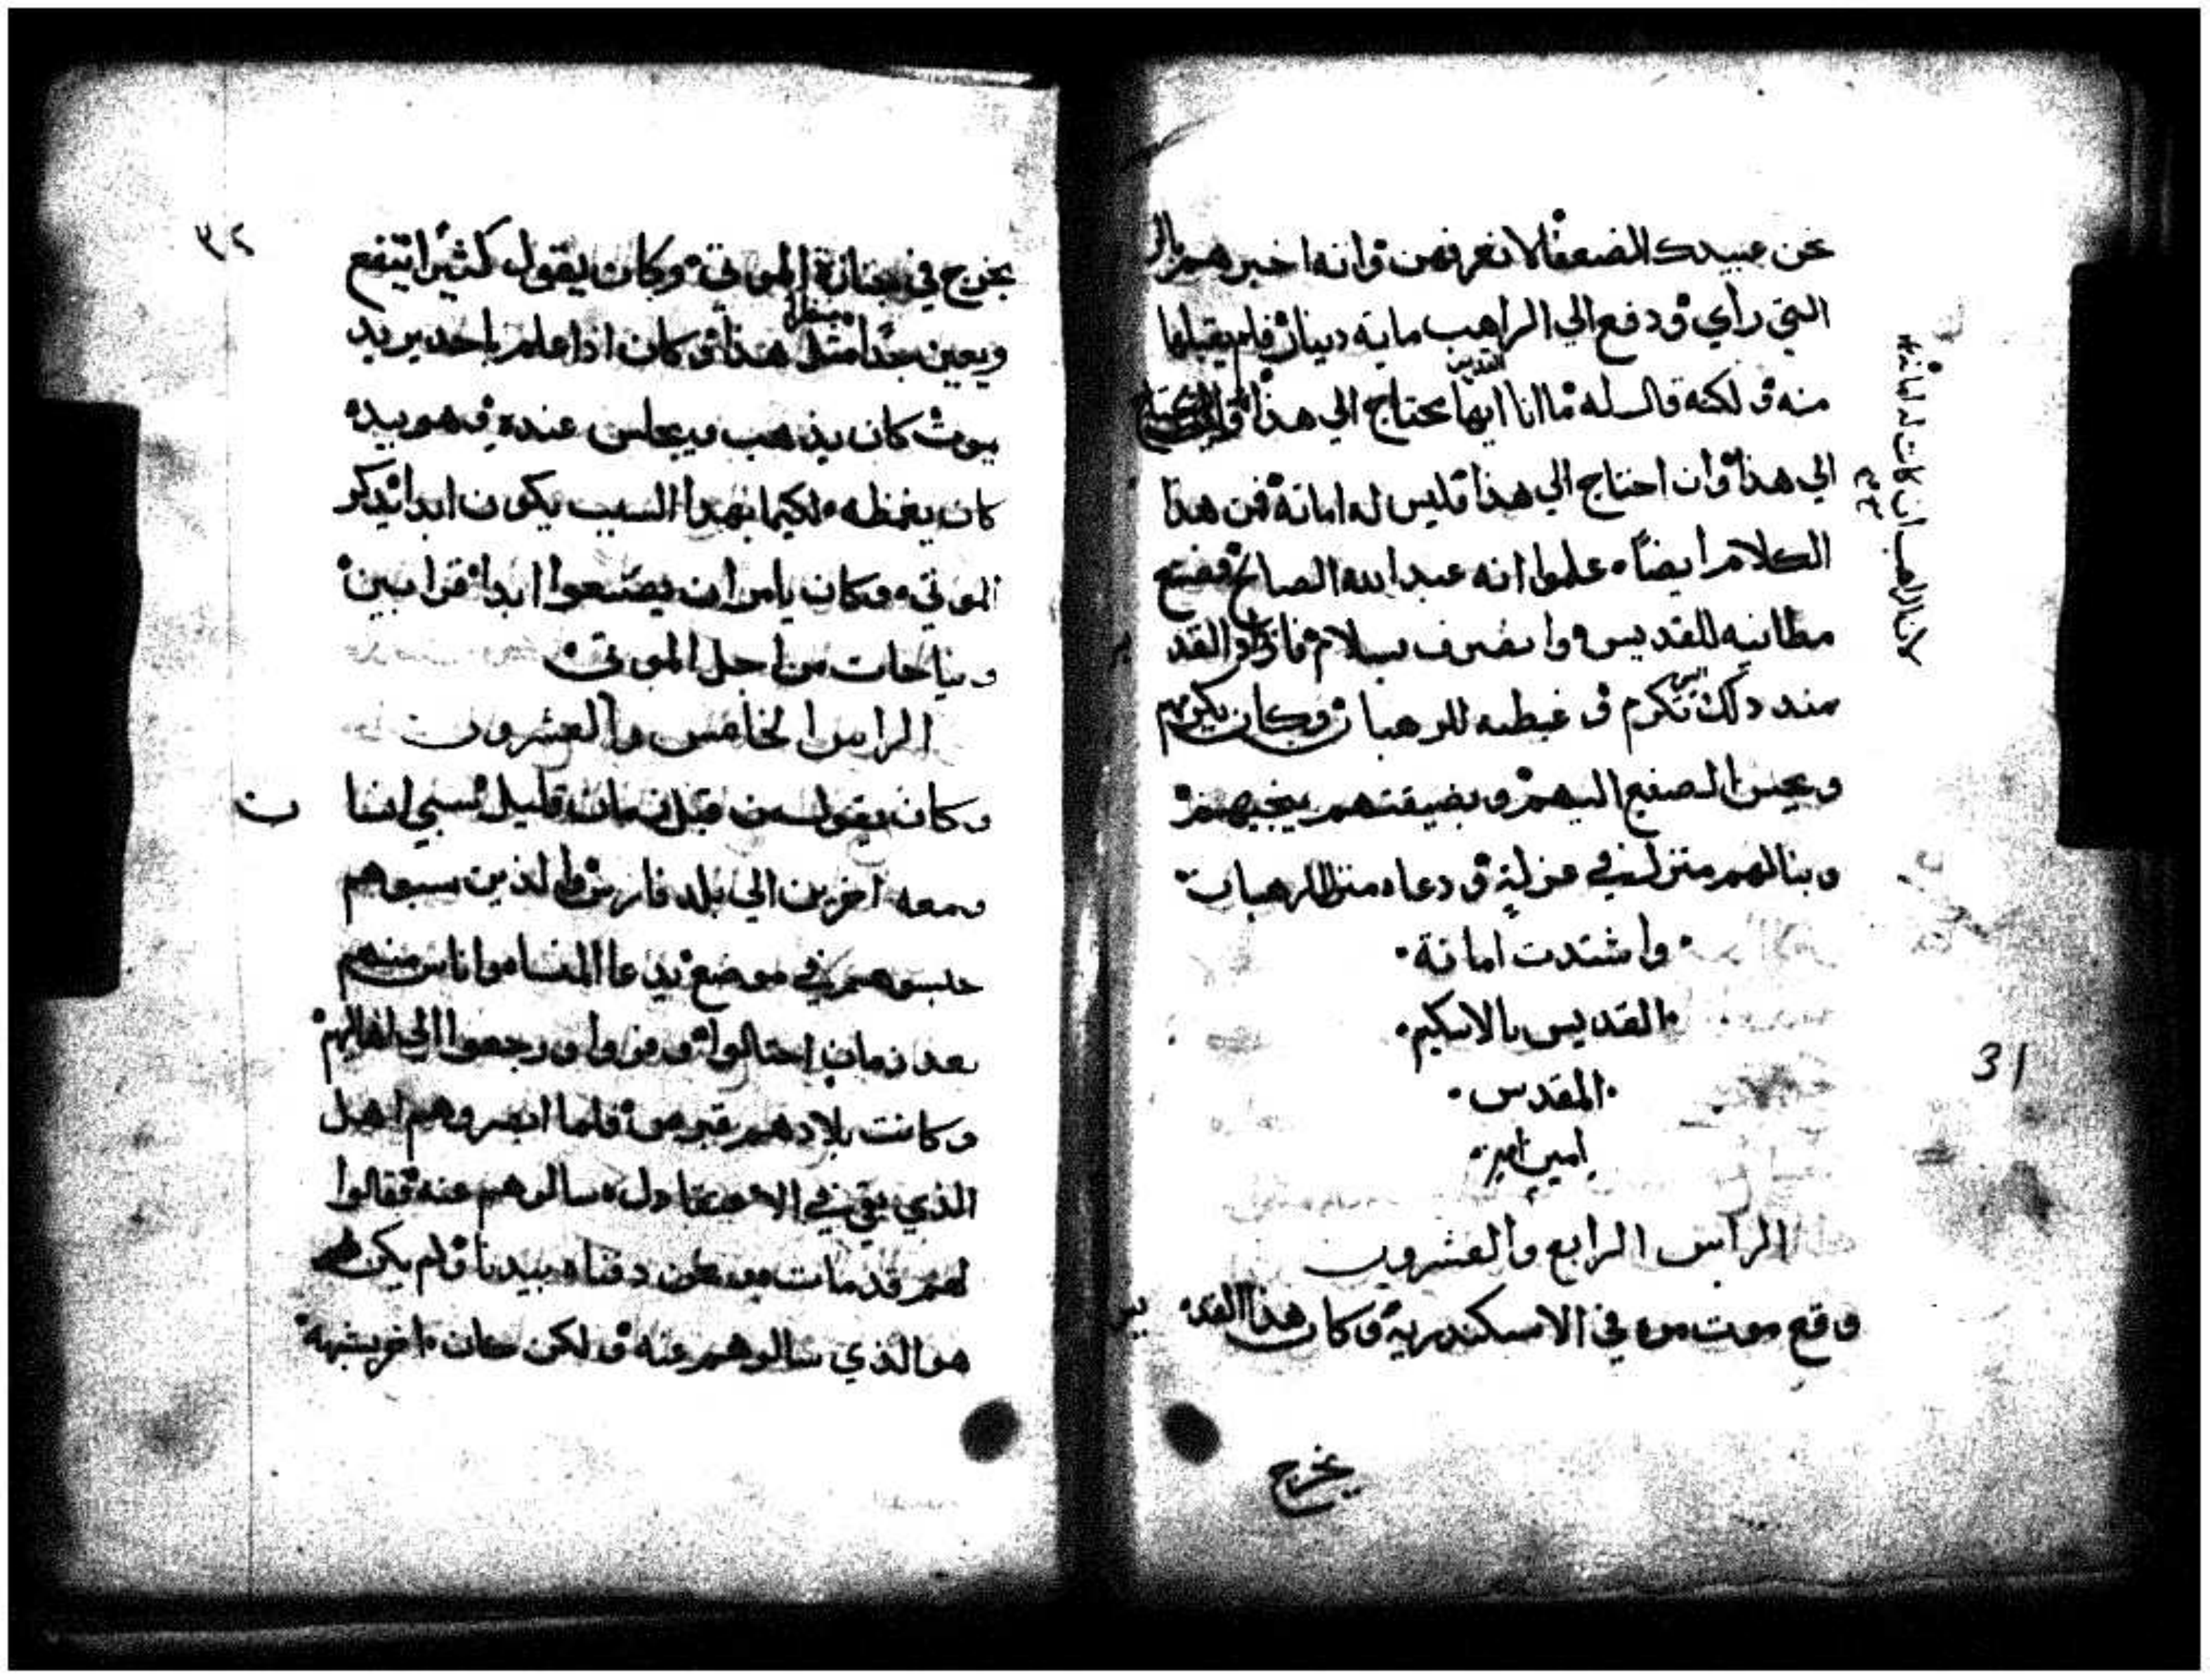 نحن عبيدك الضعفا لا نعرفهن وانه اخبرهم بالر
التي راي ودفع الي الراهب ماية دينار فلم يقبلها
منه ولكنه قال له ما انا ايها القديس محتاج الي هذا
الي هذا وان احتاج الي هذا فليس له امانة فمن هذا
الكلام ايضا علموا انه عبد الله الصالح فصنع
مطانيه للقديس وانصرف بسلام القد
منذ ذلك يس تكرم و غبطه للرهبان وكان يكرمهم
ويحسن الصنيع اليهم وبضيقتهم ينجيهم
وبنا لهم منزل في عزلة ودعاه منزل الرهبان
واشتدت امانة
القديس بالاسكيم
المقدس
امين امين
الراس الرابع والعشرون
وقع موت مره في الاسكندرية وكان هذا القد يس
يخرج
لان الراهب ان كانت له امانه
31
٣٢
يخرج في جنازة الموتي وكان يقول كثيرا ينفع
ويعين جدا مثل هذا وكان اذا علم باحد يريد
يموت كان يذهب ويجلس عنده وهو بيده
كان يغمظه لكيما بهدا السبب يكون ابدا يذكر
الموتي وكان يامر ان يصنعوا ابدا قرابين
ونياحات من اجل الموتي
الراس الخامس والعشرون
وكان يقول من قبل زمان قليل سبي انسا ن
ومعه اخرين الي بلد فارس والذين سبوهم
حبسوهم في موضع يدعا اناس منهم
بعد زمان احتالوا وفروا ورجعوا الي اهاليهم
وكانت بلادهم قبرص فلما ابصروهم اهل
الذي بقي في سالوهم عنه فقالوا
لهم قد مات ونحن دفناه بيدنا ولم يكن
هو الذي سالوهم عنه ولكن كان اخر يشبهه